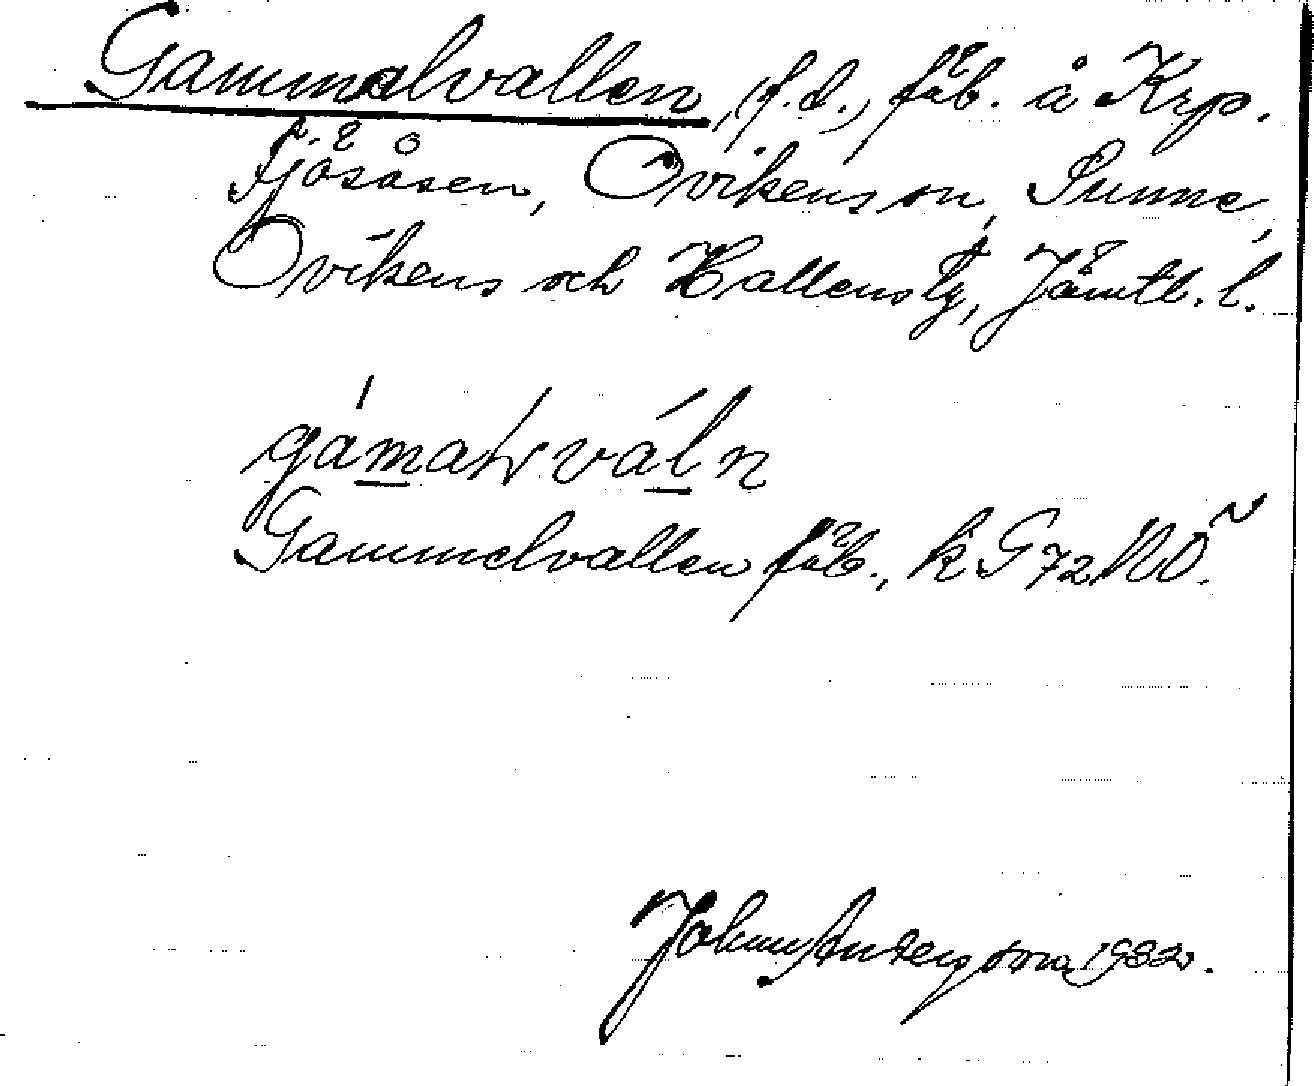 Gammalvallen, (f.d.) fäb. å Krp.
Fjösåsen, Ovikens sn, Sunne,
Ovikens och Hallens tg, Jämtl. l.
Gammelvallen fäb., k G 72 NO.
Johan Anderson 1932.